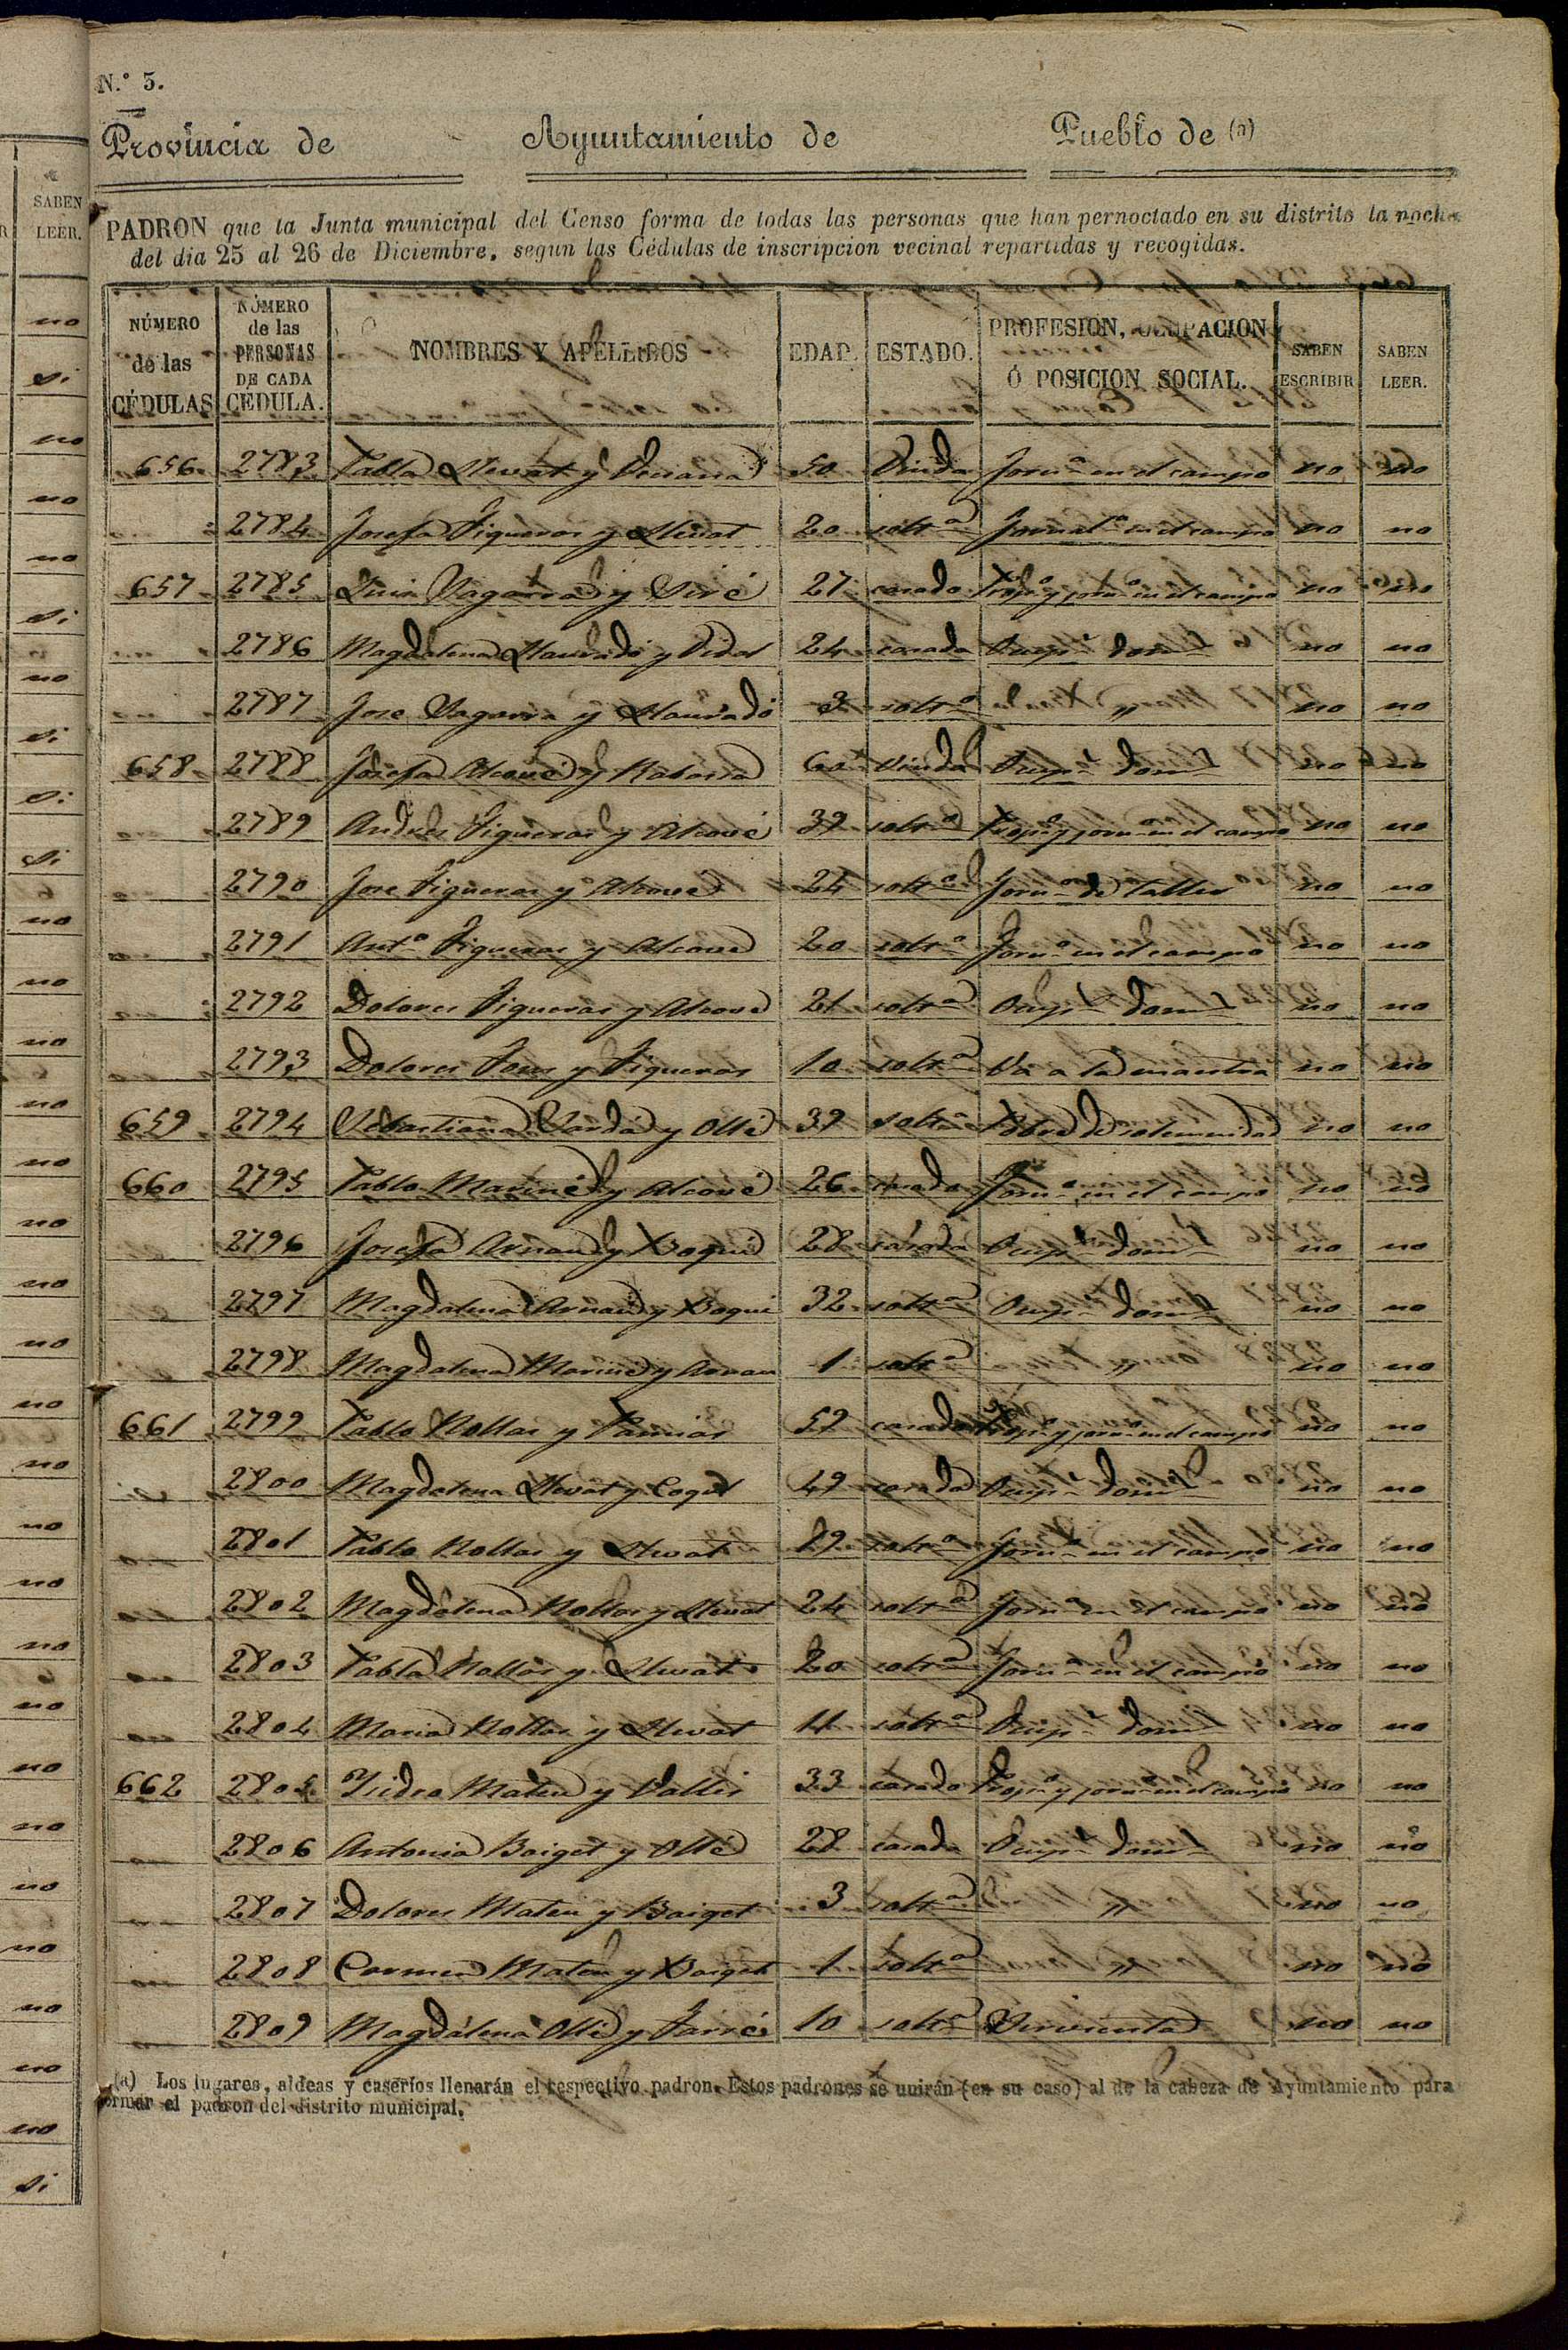 SABEN
LEER.
no
si
no
no
no
si
no
si
si
si
no
no
no
no
no
no
no
no
no
no
no
no
no
no
no
no
no
no
no
no
no
si
N.º 3.
Provincia de Ayuntamiento de Pueblo de (a)
PADRON que la Junta municipal del Censo forma de todas las personas que han pernoctado en su distrito la noche
del dia 25 al 26 de Diciembre, segun las Cédulas de inscripcion vecinal repartidas y recogidas.
NÚMERO de las CÉDULAS NÚMERO de las PERSONAS DE CADA CÉDULA. NOMBRES Y APELLIDOS EDAD. ESTADO. PROFESION, OCUPACION Ó POSICION SOCIAL. SABEN ESCRIBIR SABEN LEER.
656 2783 Pabla Llevat y 50 Viuda Jornª en el campo no no
2784 Josefa Figueras y Llevat 20 soltª Jornalª en el campo no no
657 2785 Luis Sagarra y Siré 27 casado Propº y jornº en el campo no no
2786 Magdalena Llauradó y Vidal 24 casada Ocupⁿ domª no no
2787 Jose Sagarra y Llauradó 3 soltº " no no
658 2788 Josefa Alcové y 60 viuda Ocupⁿ domª no no
2789 Andres Figueras y Alcové 39 soltº Propº y jornº en el campo no no
2790 Jose Figueras y Alcové 24 soltº Jornº de taller no no
2791 Antº Figueras y Alcové 20 soltº Jornº en el campo no no
2792 Dolores Figueras y Alcové 21 soltª Ocupⁿ domª no no
2793 Dolores y Figueras 10 soltª Vá a la maestra no no
659 2794 Sebastiana y Ollé 39 soltª Pobre de solemnidad no no
660 2795 Pablo Mariné y Alcové 26 casado Jornº en el campo no no
2796 Josefa Arnau y Boqué 28 casada Ocupⁿ domª no no
2797 Magdalena Arnau y Boqué 32 soltª Ocupⁿ domª no no
2798 Magdalena Mariné y Arnau 1 soltª " no no
661 2799 Pablo Nollas y 52 casado Propº y jornº en el campo no no
2800 Magdalena Llevat y 49 casada Ocupⁿ domª no no
2801 Pablo Nollas y Llevat 19 soltº Jornº en el campo no no
2802 Magdalena Nollas y Llevat 24 soltª Jornª en el campo no no
2803 Pabla Nollas y Llevat 20 soltª Jornª en el campo no no
2804 Maria Nollas y Llevat 11 soltª Ocupⁿ domª no no
662 2805 Isidro Mateu y Vallés 33 casado Propº y jornº en el campo no no
2806 Antonia Baiget y Ollé 28 casada Ocupⁿ domª no no
2807 Dolores Mateu y Baiget 3 soltª " no no
2808 Carmen Mateu y Baiget 1 soltª " no no
2809 Magdalena Ollé y Farrés 10 soltª Sirvienta no no
(a) Los lugares, aldeas y caseríos llenarán el respectivo padron. Estos padrones se unirán (en su caso) al de la cabeza de Ayuntamiento para
formar el padron del distrito municipal.